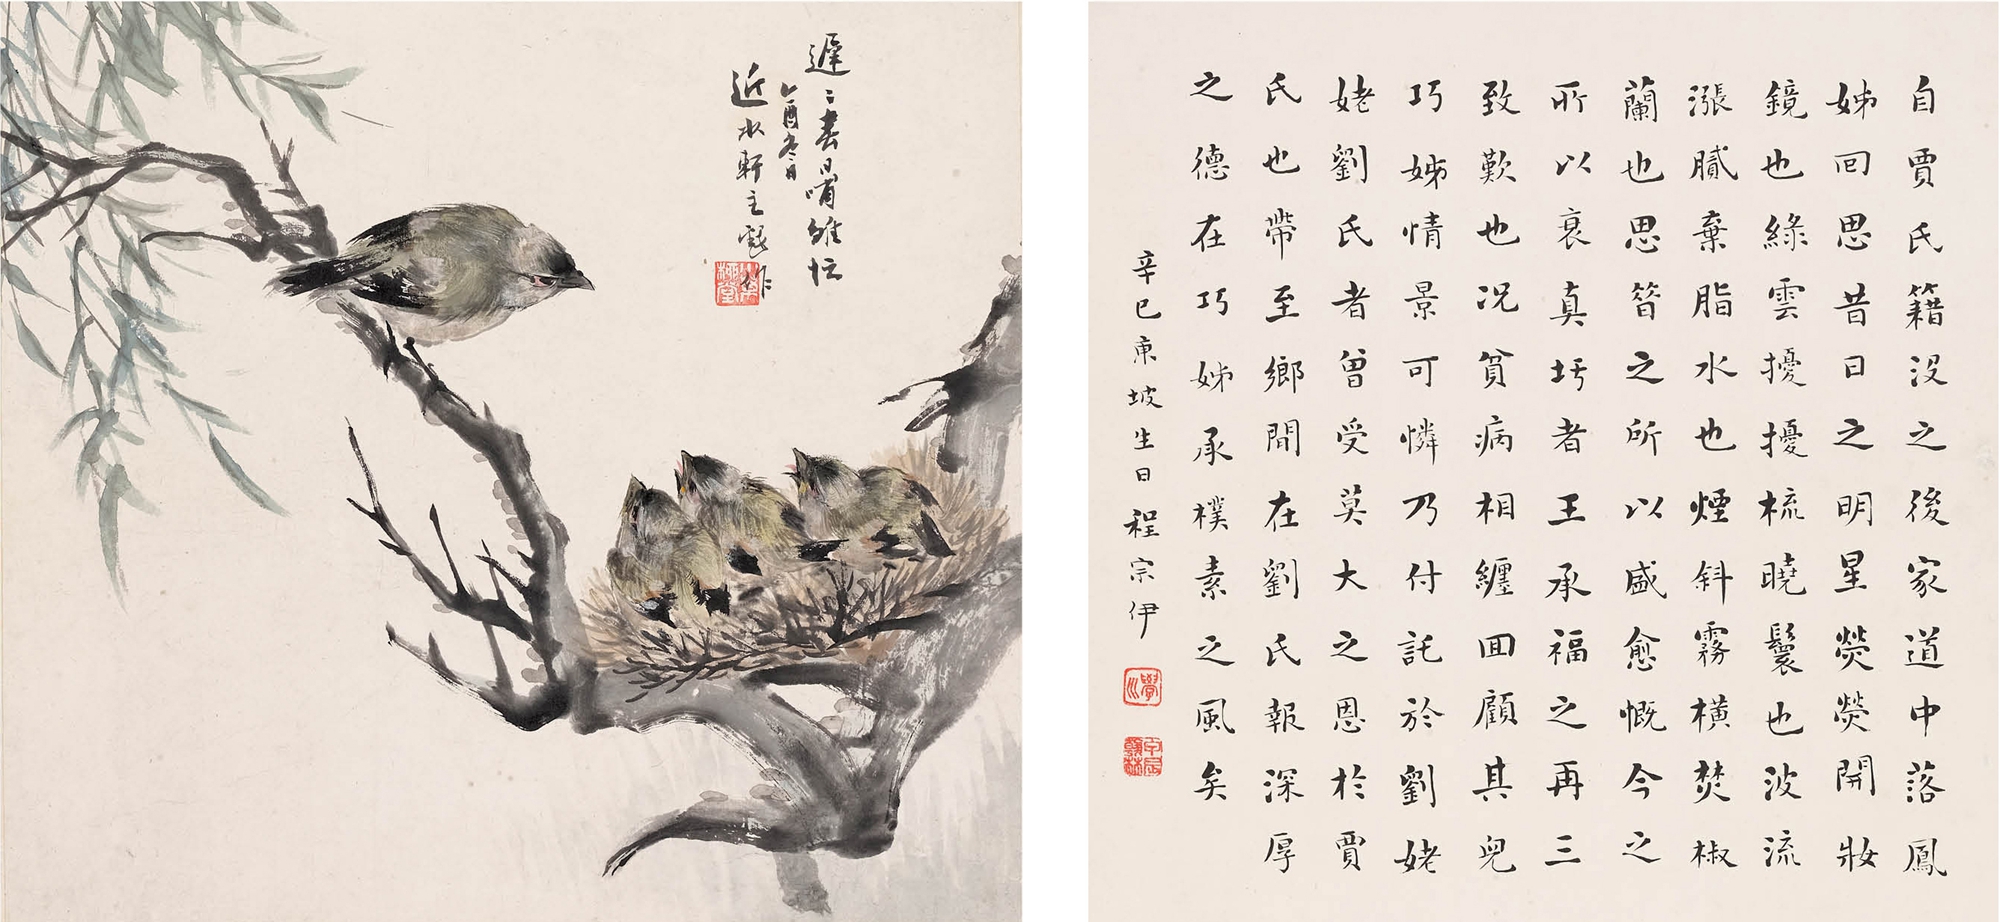 遲〻春日哺雛忙
乙酉冬日
近水軒主戲作
自賈氏籍没之後家道中落鳳
姊回思昔日之明星熒熒開妝
鏡也綠雲擾擾梳曉鬟也波流
漲膩棄脂水也煙斜霧橫焚椒
蘭也思㫺之所以盛愈慨今之
所以衰真圬者王承福之再三
致歎也况貧病相纏回顧其兒
巧姊情景可憐乃付託於劉姥
姥劉氏者曾受莫大之恩於賈
氏也帶至鄉間在劉氏報深厚
之德在巧姊承樸素之風矣
辛巳東坡生日程宗伊